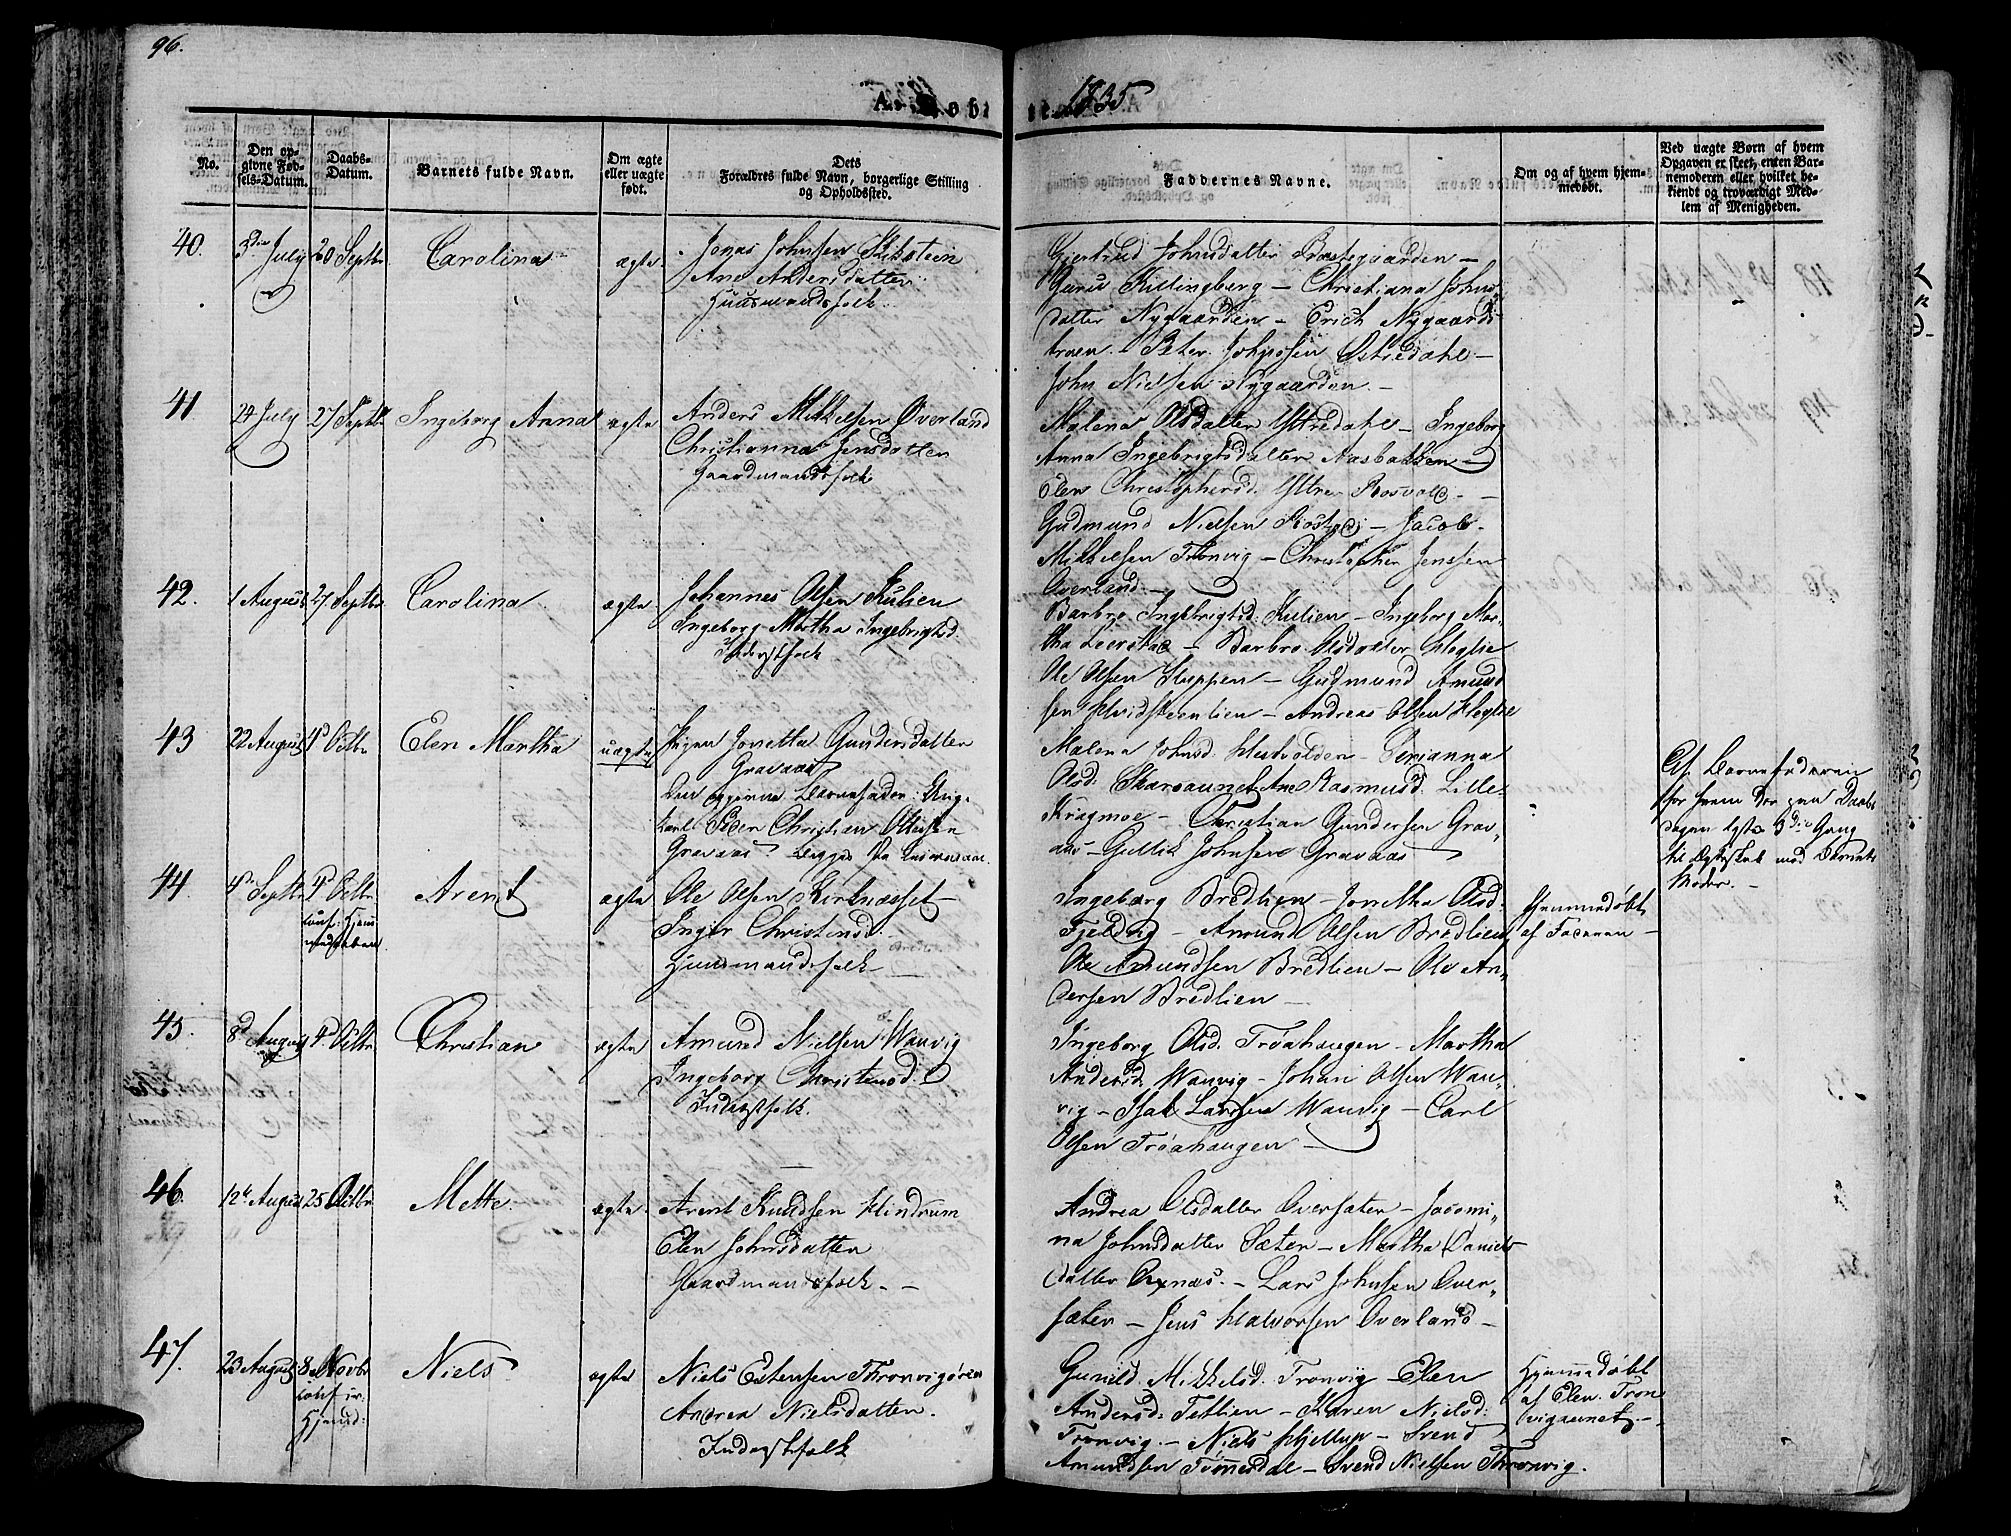 96.
1835
No.
Den op-
givne Fød-
sels-Datum.
Daabs-
Datum.
Barnets fulde Navn.
Om ægte
eller uægte
født.
Dets
Forældres fulde Navn, borgerlige Stilling
og Opholdssted.
Faddernes Navne.
Om og af hvem hjem-
medøbt.
Ved uægte Børn af hvem
Opgaven er skeet, enten Bar-
nemoderen eller hvilket be-
kiendt og troværdigt Med-
lem af Menigheden.
40.
July
20 Septbr
Carolina
ægte
Jonas Johnsen
Ane Andersdatter
Huusmandsfolk
Giertrud Johnsdatter
Guru Killingberg – Christiana Johns
datter Nygaarden – Erich Nygaards
troen. – Peter Johnsen Ystredahl –
John Nielsen Nygaarden. –
41
24 July
27 Septbr
Ingeborg Anna
ægte
Anders Mikkelsen Overland
Christianna Jensdatter
Gaardmandsfolk
Malena Olsdatter Yttredahl – Ingeborg
Anna Ingebrigtsdatter Aasbakken –
Elen Christophersd. Yttre Rosvold –
Gudmund Nielsen Rostad – Jacob
Mikkelsen Tronvig – Christopher Jenssen
Overland. –
42.
1 August
27 Septbr
Carolina
ægte
Johannes Olsen Kulien
Ingeborg Martha Ingebrigtsd.
Inderstfolk
Barbro Ingebrigtsd. Kulien – Ingeborg Mar-
tha – Barbro Olsdatter
Ole Olsen – Gudmund Amund
sen – Andreas Olsen
43
22 August
4d Octbr
Elen Martha
uægte
Pigen Jonetta Gundersdatter
Gravaas
Den opgivne Barnefader: Ung-
karl Peder Christian Ottesen
Gravaas
Malena Johnsd. – Serianna
Olsd. Skarsaunet Ane Rasmusd. Lille-
Kragmoe – Christian Gundersen Grav-
aas – Gullik Johnsen Gravaas
Af Barnefaderen
for hvem der paa Daabs
dagen lyste 3die Gang
til Ægteskab med Barnets
Moder. –
44
4de Septbr
4d Octbr
Arent
ægte
Ole Olsen Kirknæsset –
Inger Christensd.
Huusmandsfolk –
Ingeborg Bredlien – Jonetha Olsd.
Fjelden – Amund Olsen Bredlien
Ole Amundsen Bredlien – Ole An-
dersen Bredlien –
Hjemmedøbt
af Faderen –
45.
8d August
4d Octbr
Christian
ægte
Amund Nielsen Wanvig
Ingeborg Christensd.
Inderstfolk.
Ingeborg Olsd. Trøahaugen – Martha
Andersd. Wanvig – Johan Olsen Wan-
vig – Isak Larssen Wanvig – Carl
Olsen Trøahaugen –
46.
12te August
25 Octbr
Mette.
ægte
Arent Knudsen Hindrum
Elen Johnsdatter
Gaardmandsfolk – –
Andrea Olsdatter Oversæter – Jacomi-
na Johnsdatter Sæter – Martha Daniels
datter Oxnæs. – Lars Johnsen Over-
sæter – Jens Halvorsen Overland –
47.
23 August
8 Novbr
Niels
ægte
Niels Estensen Thronvigøren
Andrea Nielsdatter.
Inderstfolk
Gunild Mikkelsd. Tronvig – Elen
Andersd. Tetlien – Karen Nielsd.
Tronvig. – Niels Hjellup – Svend
Amundsen Tømmesdal – Svend Nielsen Thronvig.
Hjemmedøbt
af Elen Tron
vigaunet. –